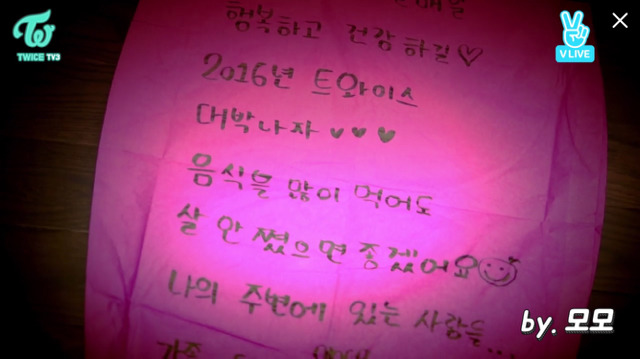 TWICE TV3
V LIVE
행복하고 건강하길♡
2016년 트와이스
대박나자 ♥ ♥ ♥
음식을 많이 먹어도
살 안 쪘으면 좋겠어요
나의 주변에 있는 사람들...
가족
by. 모모